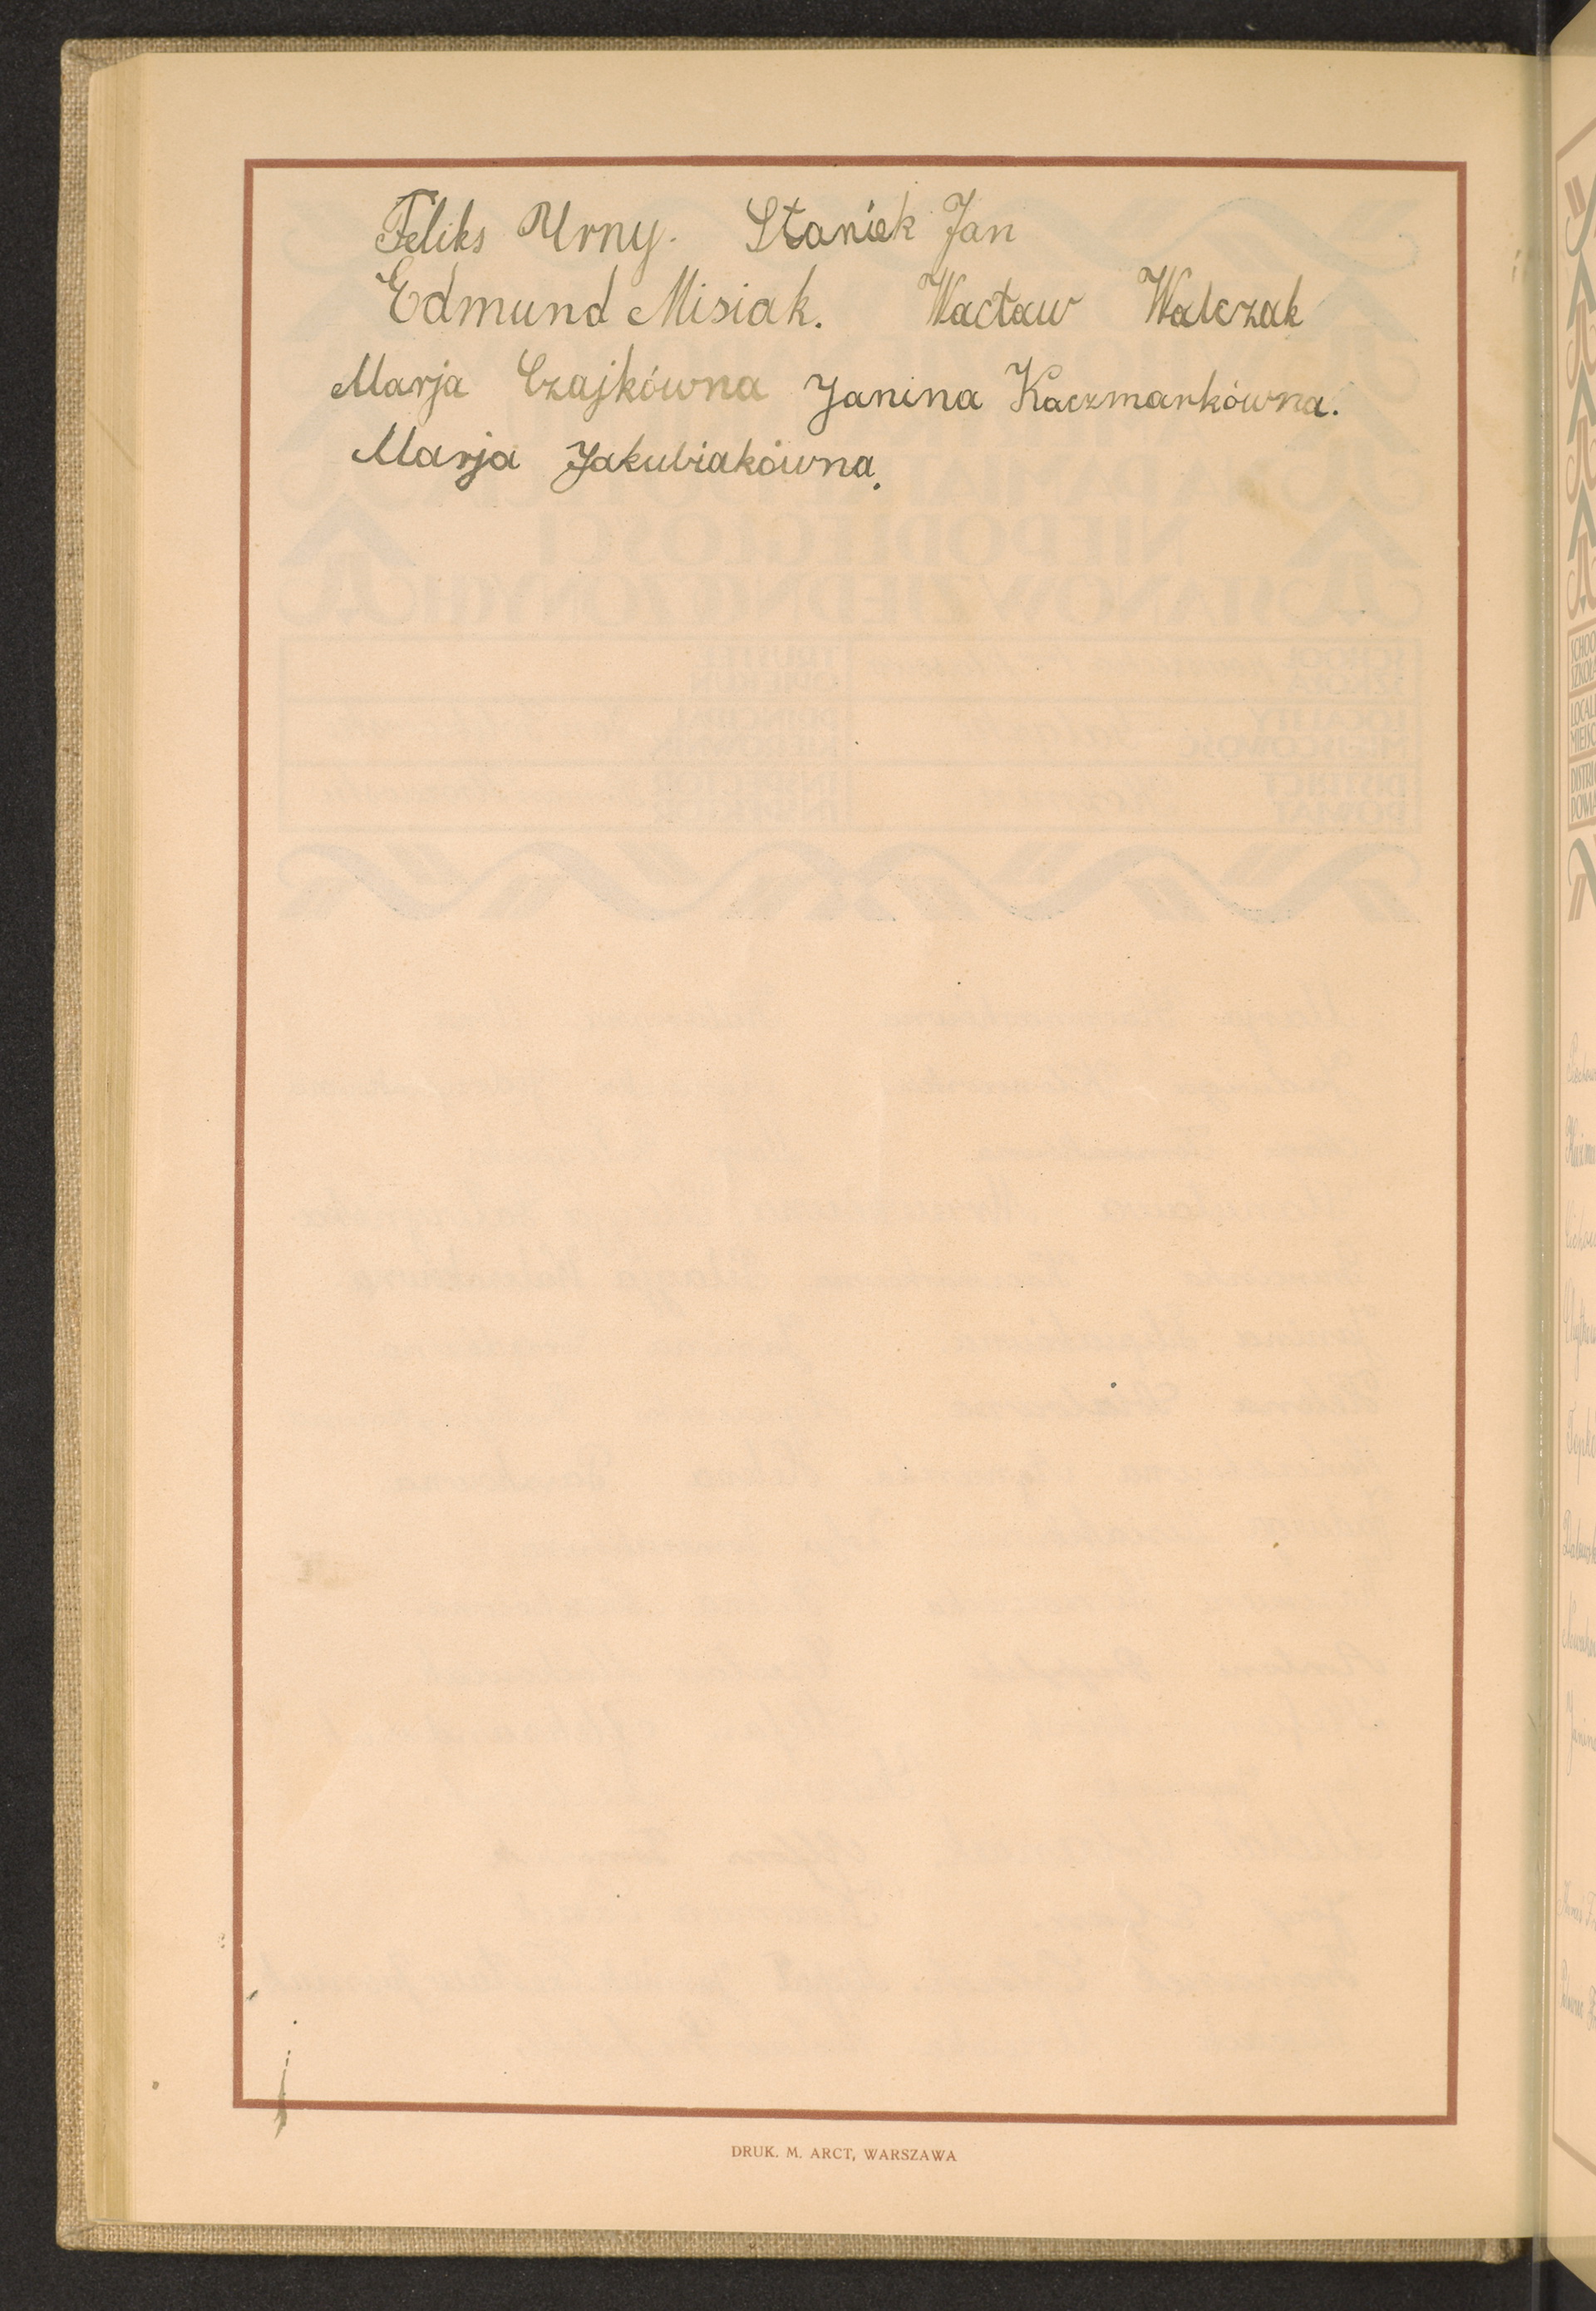 Feliks Urny. Staniek Jan
Edmund Misiak. Wacław Walczak
Marja Czajkówna Janina Kaczmarkówna.
Marja Jakubiakówna.
DRUK. M. ARCT, WARSZAWA